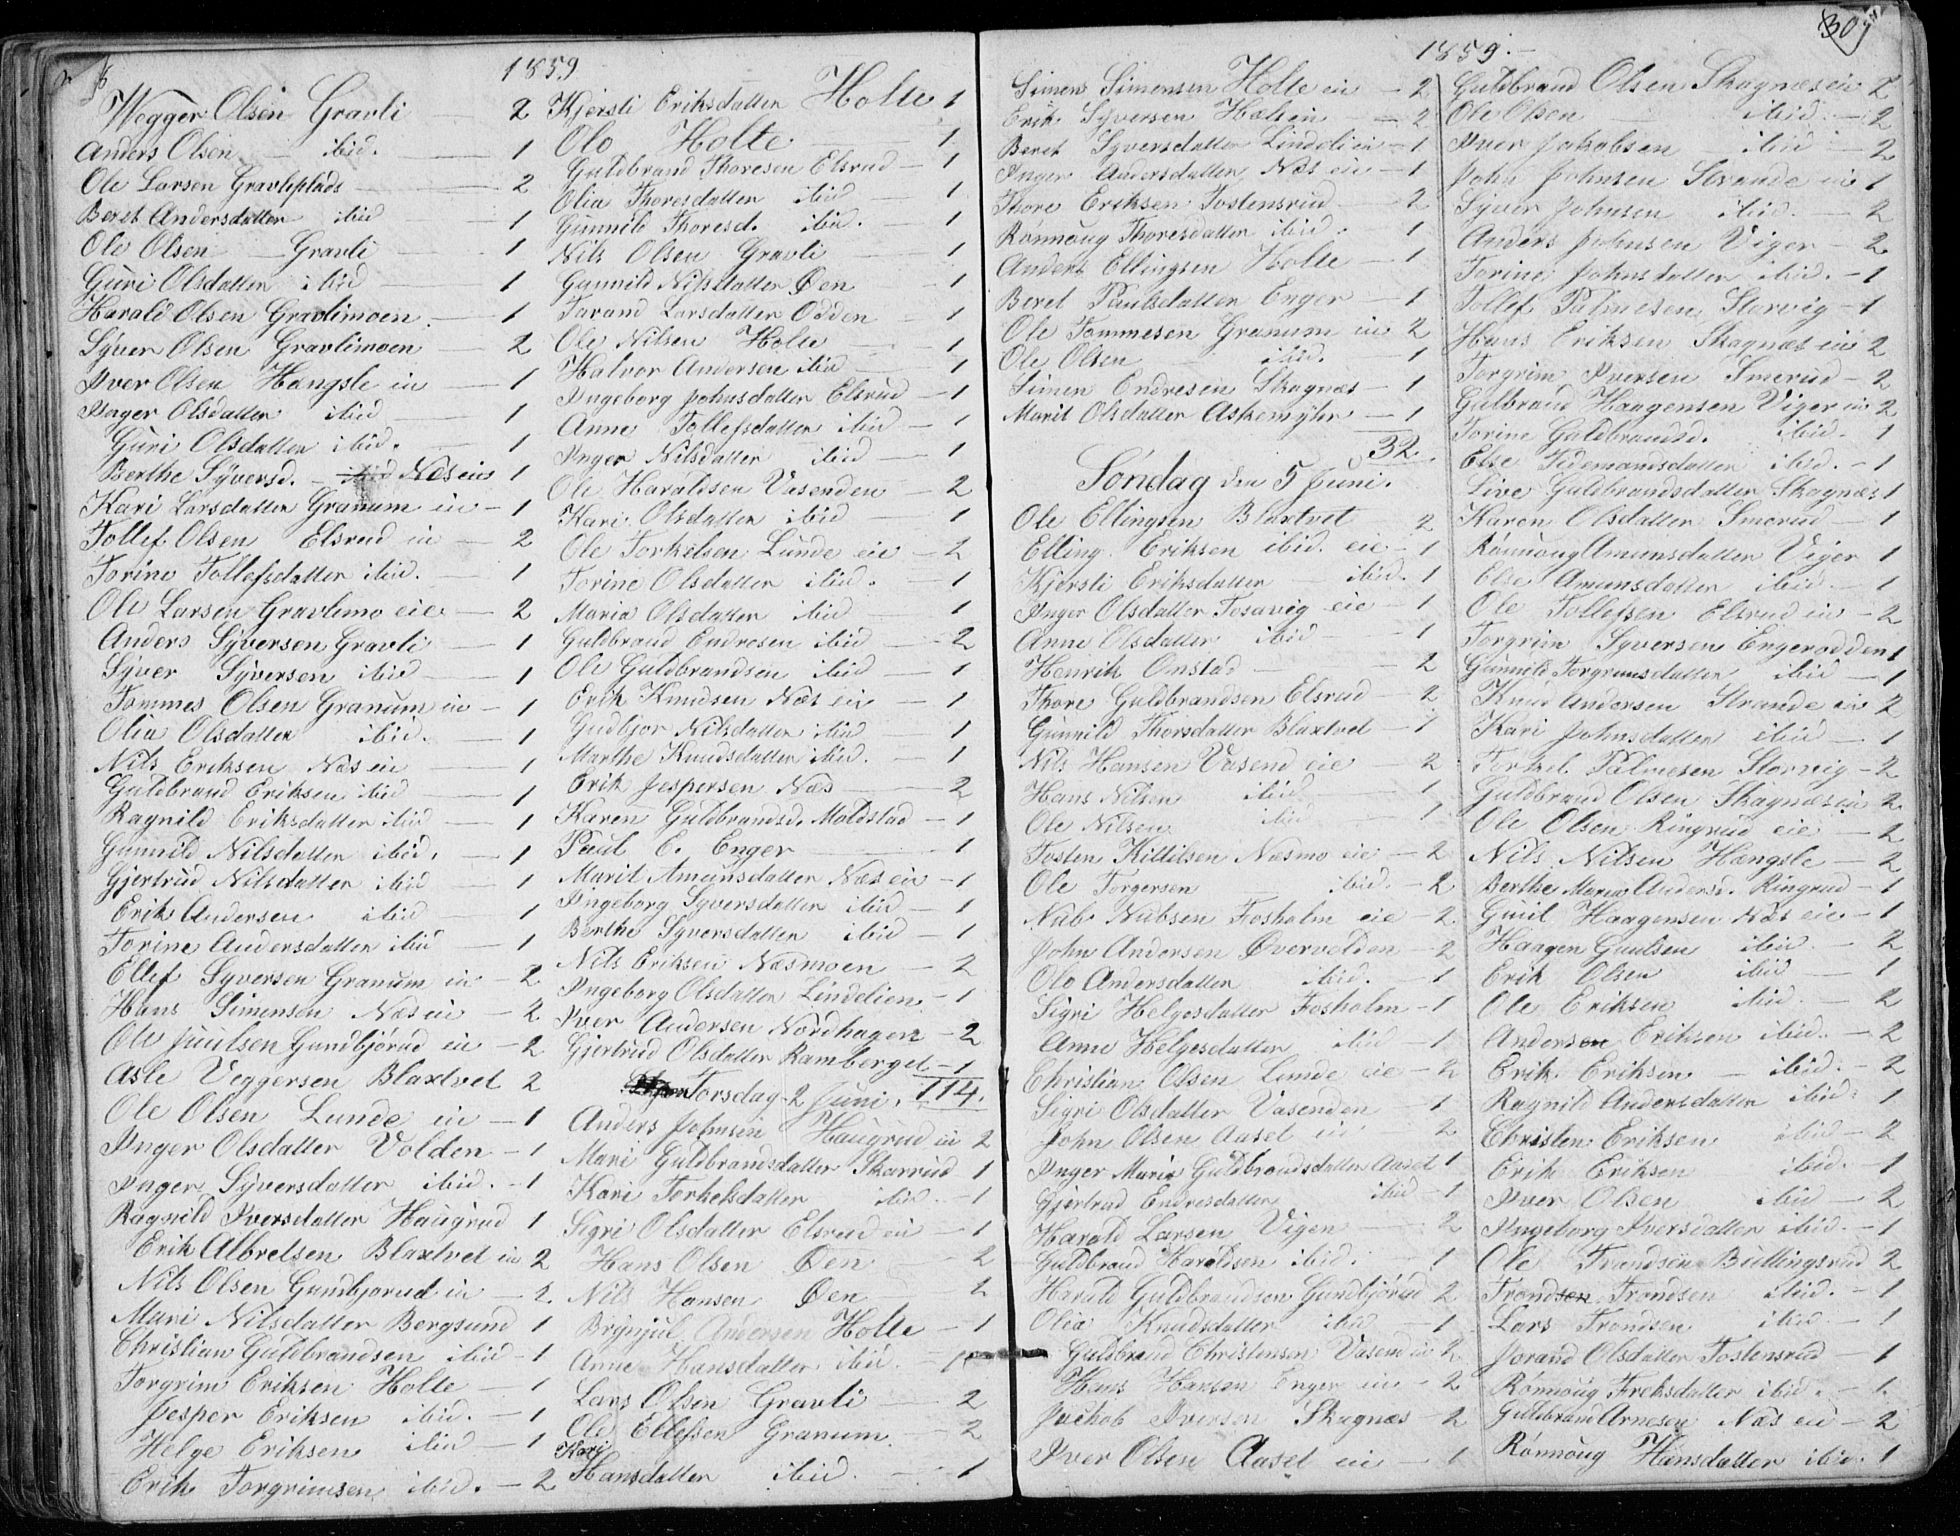 1859
Wegger Olsen Gravli — 2
Anders Olsen — ibid. — 1
Ole Larsen Gravliplads — 2
Beret Andersdatter ibid — 1
Ole Olsen — Gravli — 1
Guri Olsdatter ibid — 1
Harald Olsen Gravlimoen — 1
Syver Olsen Gravlimoen — 2
Iver Olsen Hængsle eie — 1
Inger Olsdatter ibid — 1
Guri Olsdatter ibid. — 1
Berthe Syversd. — ibid Næs eie 1
Kari Larsdatter Granum eie — 1
Tollef Olsen Elsrud eie — 2
Torine Tollefsdatter ibid. — 1
Ole Larsen Gravlimo eie — 2
Anders Syversen Gravli — 1
Syver Syversen ibid — 1
Tommes Olsen Granum eie — 1
Olia Olsdatter ibid. — 1
Nils Eriksen Næs eie — 1
Guldbrand Eriksen ibid — 1
Ragnild Eriksdatter ibid — 1
Gunnild Nilsdatter ibid. — 1
Gjertrud Nilsdatter ibid — 1
Erik Andersen ibid — 1
Torine Andersdatter ibid — 1
Ellef Syversen Granum eie — 2
Hans Simensen Næs eie — 2
Ole Juulsen Gundbjørud eie — 2
Asle Veggersen Blaxtvet 2
Ole Olsen Lunde eie — 1
Inger Olsdatter Volden — 1
Inger Syversdatter ibid. — 1
Ragnild Iversdatter Haugrud 1
Erik Albretsen Blaxtvet eie 2
Nils Olsen Gundbjørud eie — 2
Mari Nilsdatter Bergsund 1
Christian Guldbrandsen ibid — 1
Torgrim Eriksen Holte — 1
Jesper Eriksen ibid. — 1
Helge Eriksen ibid — 1
Erik Torgrimsen ibid. — 2
Kjersti Eriksdatter Holte 1
Olo Holte — 1
Guldbrand Thoresen Elsrud — 1
Olia Thoresdatter ibid — 1
Gunnild Thoresd. ibid. — 1
Nils Olsen Gravli — 1
Gunnild Nilsdatter Øen — 1
Tarand Larsdatter Odden 1
Ole Nilsen Holte — 1
Halvor Andersen ibid — 1
Ingeborg Johnsdatter Elsrud — 1
Anne Tollefsdatter ibid — 1
Inger Nilsdatter ibid — 1
Ole Haraldsen Vasenden — 2
Kari Olsdatter ibid — 1
Ole Torkelsen Lunde eie — 2
Torine Olsdatter ibid. — 1
Maria Olsdatter ibid — 1
Guldbrand Endresen ibid — 2
Ole Guldbrandsen ibid — 1
Erik Knudsen Næs eie — 1
Gudbjor Nilsdatter ibid 1
Marthe Knudsdatter ibid. — 1
Erik Jespersen Næs — 2
Karen Guldbrandsd. Moldstad — 1
Paul E. Enger — 1
Marit Amunsdatter Næs eie — 1
Ingeborg Syversdatter ibid — 1
Berthe Syversdatter ibid — 1
Nils Eriksen Næsmoen — 2
Ingeborg Olsdatter Lindelien — 1
Iver Andersen Nordhagen — 2
Gjertrud Olsdatter Ramberget — 1
Torsdag 2 Juni. 114.
Anders Johnsen Haugrud eie 2
Mari Guldbrandsdatter Skarrud 1
Kari Torkelsdatter ibid. — 1
Sigri Olsdatter Elsrud eie — 1
Hans Olsen Øen — 2
Nils Hansen Øen — 2
Brynjul Andersen Holte — 1
Anne Hansdatter ibid. — 1
Lars Olsen Gravli — 2
Ole Ellefsen Granum — 2
Kari
Hansdatter ibid. — 1
1859.
Simen Simensen Holte eie — 2
Erik Syversen Holt eie — 2
Beret Syversdatter Lindeli eie — 1
Inger Andersdatter Næs eie — 1
Thore Eriksen Tostensrud — 2
Rønnoug Thoresdatter ibid. 1
Anders Ellingsen Holte — 1
Beret Paulsdatter Enger — 1
Ole Tommesen Granum eie 2
Ole Olsen ibid. 1
Simen Endresen Skagnæs — 1
Marit Olsdatter Askemyhr — 1
32.
Søndag den 5 Juni.
Ole Ellingsen Blaxtvet 2
Elling Eriksen ibid. eie — 1
Kjersti Eriksdatter — ibid. 1
Inger Olsdatter Tosavig eie — 1
Anne Olsdatter ibid — 1
Henrik Onstad — 2
Thore Guldbrandsen Elsrud — 2
Gunnild Thorsdatter Blaxtvet — 1
Nils Hansen Vasend eie — 2
Hans Nilsen ibid — 1
Ole Nilsen ibid — 1
Tosten Kittilsen Næsmo eie — 2
Ole Torgersen ibid. — 2
Nub Nubsen Fosholm eie — 2
John Andersen Øvervolden — 2
Olo Andersdatter ibid. — 1
Sigri Helgesdatter Fosholm — 1
Anne Helgesdatter ibid — 1
Christian Olsen Lunde eie — 2
Sigri Olsdatter Vasenden — 1
John Olsen Aasel eie 2
Inger Maria Guldbrandsdatter Aasel 1
Gjertrud Endresdatter ibid — 1
Harald Larsen Vigen — 2
Guldbrand Haraldsen ibid. — 1
Harald Guldbrandsen Gundbjørud 2
Olia Knudsdatter ibid — 1
Guldbrand Christensen Vasend eie 2
Hans Hansen Enger eie — 2
Jackob Iversen Skagnæs — 2
Iver Olsen Aasel eie — 1
Guldbrand Olsen Skagnæs eie 2
Ole Olsen — ibid. — 2
Iver Jakobsen — ibid — 2
John Johnsen Strande eie 1
Syver Johnsen ibid. — 2
Anders Johnsen Viger — 2
Torine Johnsdatter ibid. — 1
Tollef Palmesen Storvig — 1
Hans Eriksen Skagnæs eie 2
Torgrim Iversen Smerud — 2
Gulbrand Haagensen Viger eie 2
Torine Guldbrandsd. ibid. 1
Else Tidemandsdatter ibid. — 1
Live Guldbrandsdatter Skagnæs 1
Karen Olsdatter Smerud — 1
Rønnoug Amunsdatter Viger 1
Else Amunsdatter ibid. — 1
Ole Tollefsen Elsrud eie — 2
Torgrim Syversen Engerodden 1
Gunnild Torgrimsdatter ibid — 1
Knud Andersen Strande eie 2
Kari Johnsdatter ibid — 1
Torkel Palmesen Storvig — 2
Guldbrand Olsen Skagnæs eie 2
Ole Olsen Ringrud eie — 2
Nils Nilsen Hængsle — 2
Berthe Maria Andersd. Ringrud — 1
Guul Haagensen Næs eie — 1
Haagen Guulsen ibid. — 2
Erik Olsen ibid — 1
Ole Eriksen ibid. — 2
Andersen Eriksen ibid. — 2
Erik Eriksen — ibid. — 2
Ragnild Andersdatter ibid. 1
Christen Eriksen ibid — 2
Erik Eriksen ibid. — 1
Iver Olsen ibid — 2
Ingeborg Iversdatter ibid. — 1
Ole Trondsen Bullingsrud 2
Trondsen Trondsen ibid. — 1
Lars Trondsen ibid. — 1
Jorand Olsdatter Tostensrud — 1
Rønnoug Freksdatter ibid. — 1
Guldbrand Arnesen Næs eie — 2
Rønnoug Hansdatter ibid. 1